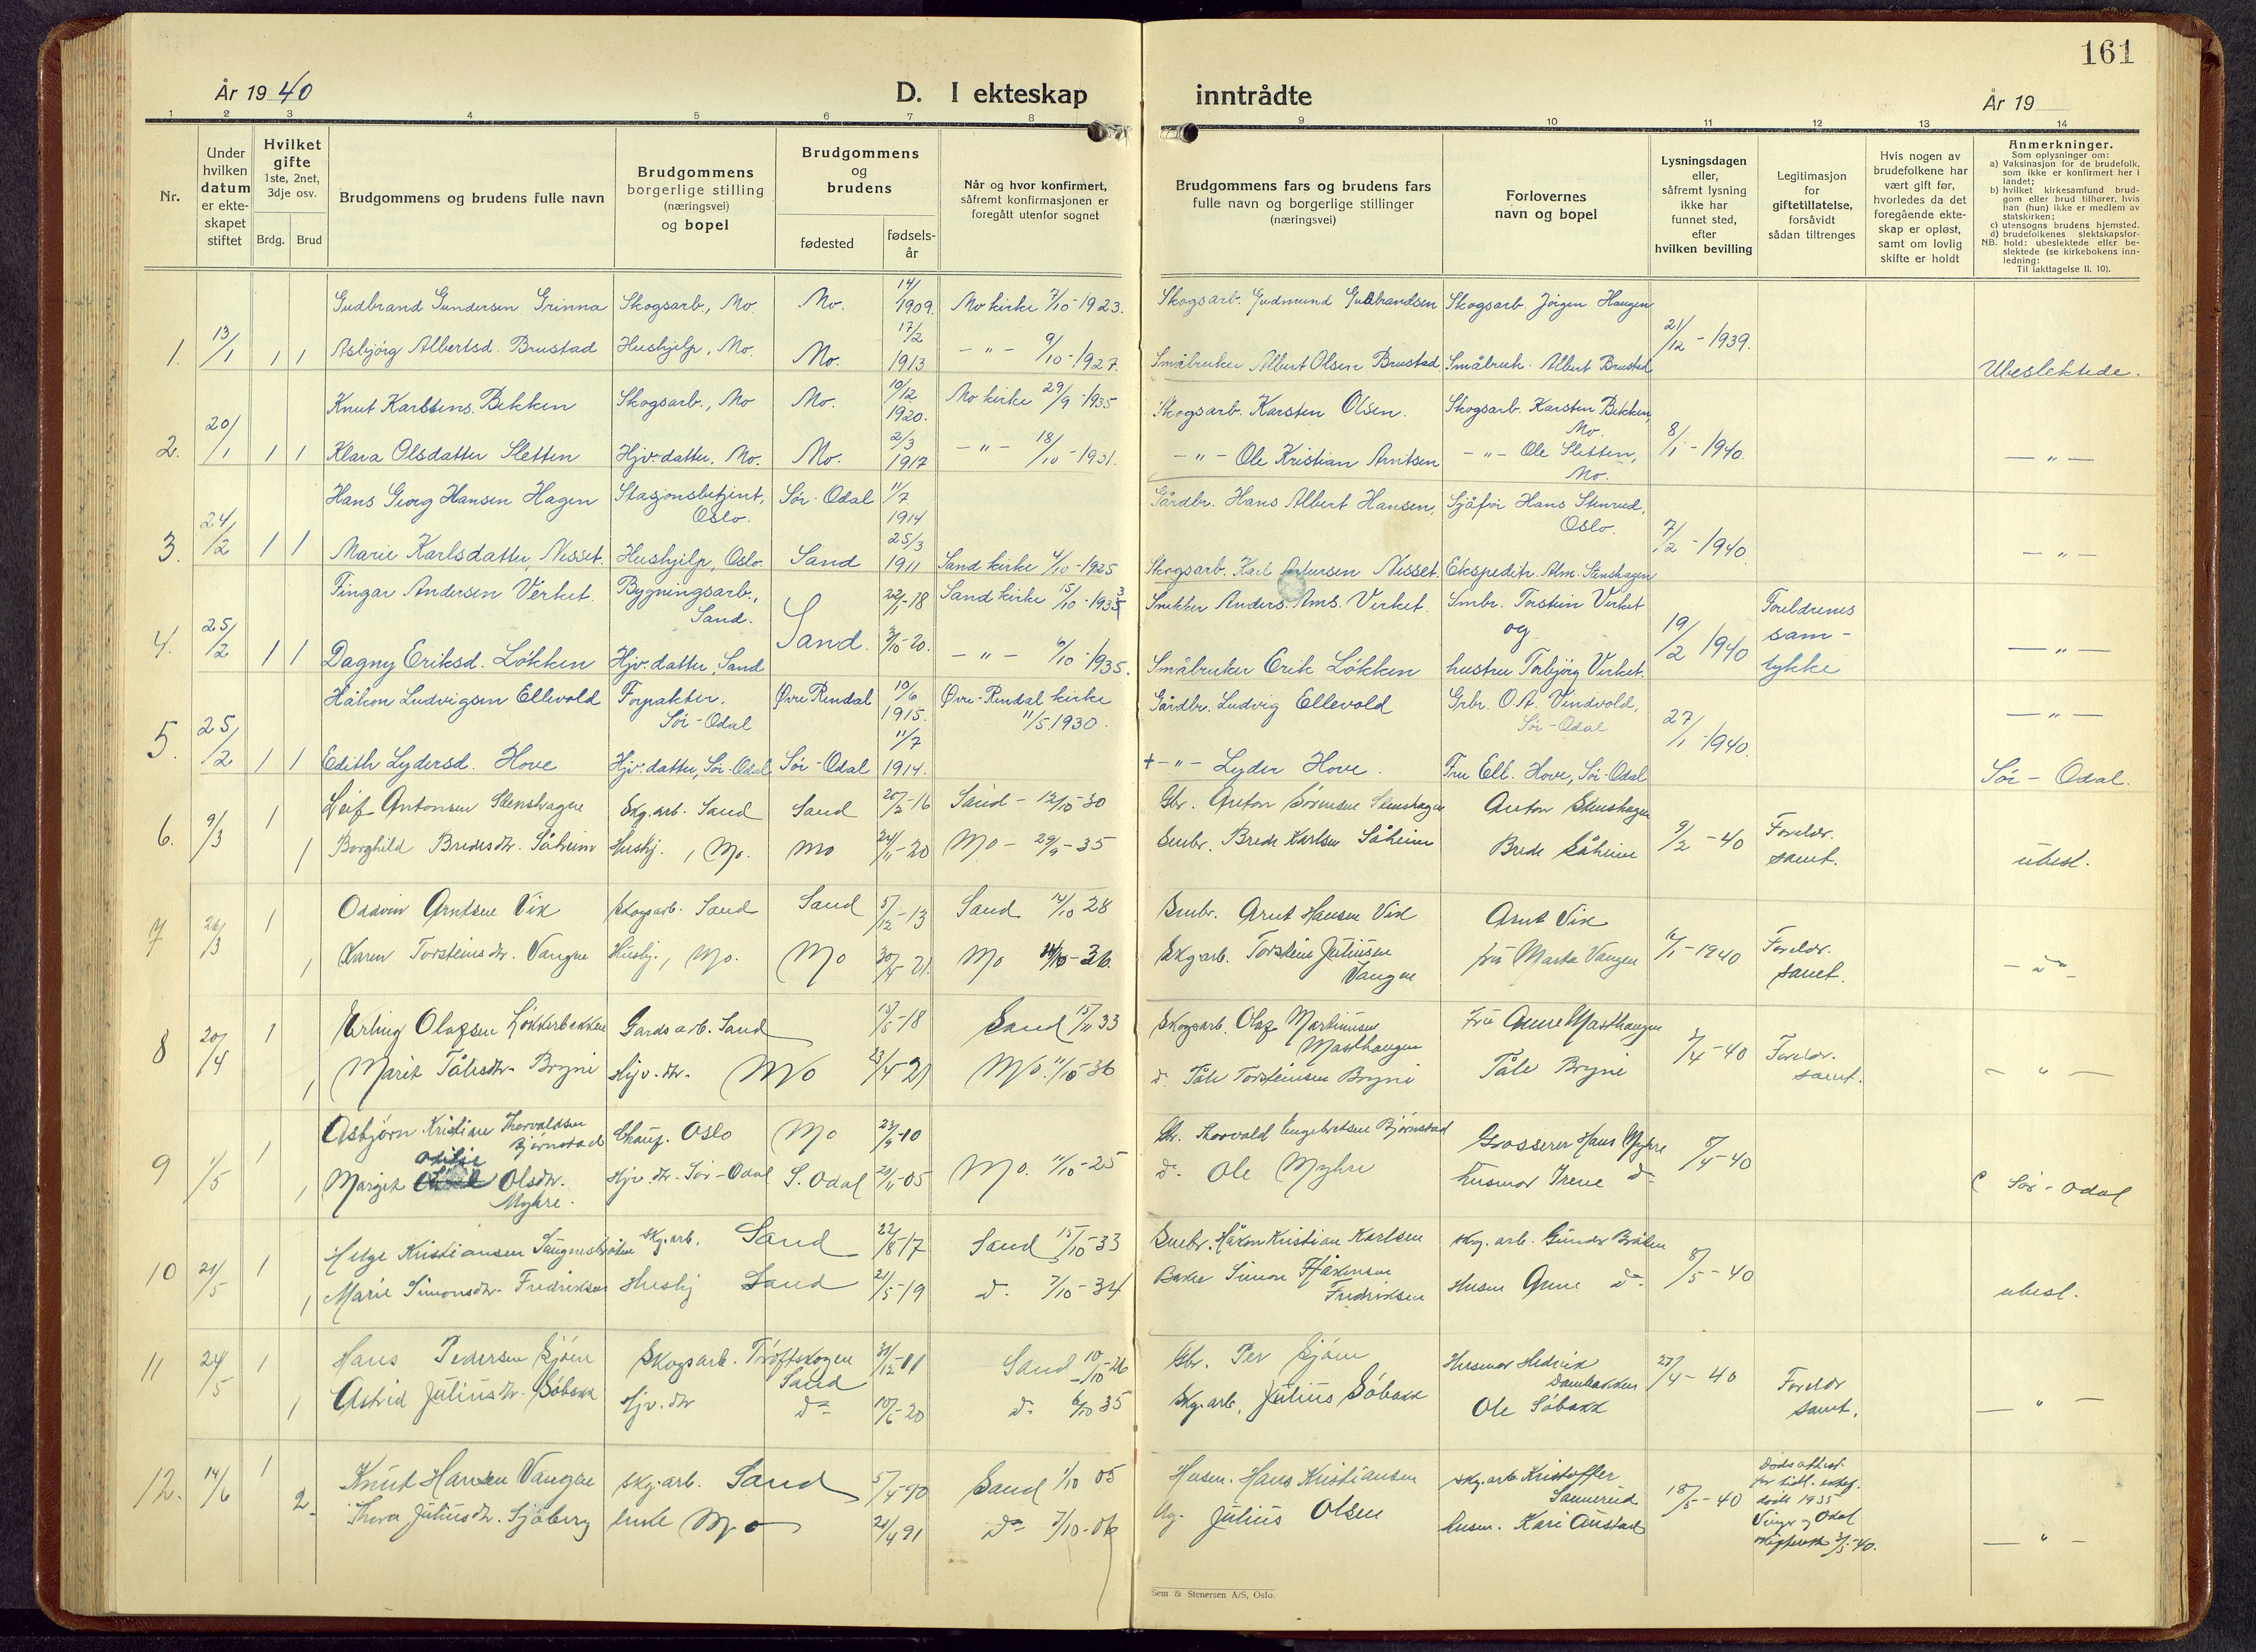 161
År 19 40
D. I ekteskap inntrådte
År 19
1 2 3 4 5 6 7 8 9 10 11 12 13 14
Nr.
Under
hvilken
datum
er ekte-
skapet
stiftet
Hvilket
gifte
1ste, 2net,
3dje osv.
Brdg. Brud
Brudgommens og brudens fulle navn
Brudgommens
borgerlige stilling
(næringsvei)
og bopel
Brudgommens
og
brudens
fødested
fødsels-
år
Når og hvor konfirmert,
såfremt konfirmasjonen er
foregått utenfor sognet
Brudgommens fars og brudens fars
fulle navn og borgerlige stillinger
(næringsvei)
Forlovernes
navn og bopel
Lysningsdagen
eller,
såfremt lysning
ikke har
funnet sted,
efter
hvilken bevilling
Legitimasjon
for
giftetillatelse,
forsåvidt
sådan tiltrenges
Hvis nogen av
brudefolkene har
vært gift før,
hvorledes da det
foregående ekte-
skap er opløst,
samt om lovlig
skifte er holdt
Anmerkninger.
Som oplysninger om:
a) Vaksinasjon for de brudefolk,
som ikke er konfirmert her i
landet;
b) hvilket kirkesamfund brud-
gom eller brud tilhører, hvis
han (hun) ikke er medlem av
statskirken;
c) utensogns brudens hjemsted.
d) brudefolkenes slektskapsfor-
NB. hold: ubeslektede eller be-
slektede (se kirkebokens inn-
ledning:
Til iakttagelse II. 10).
Gudbrand Gundersen Grinna Skogsarb., Mo. Mo. 14/1 1909. Mo kirke 7/10-1923. Skogsarb. Gudmund Gulbrandsen Skogsarb. Jörgen Haugen
1. 13/1 1 1 Asbjörg Albertsd. Brustad Hushjelp, Mo. Mo. 17/2 1913 - " - 9/10-1927. Småbruker Albert Olsen Brustad Småbruk. Albert Brustad 21/12-1939. Ubeslektede.
Knut Karstens. Bekken Skogsarb., Mo Mo. 10/12 1920. Mo kirke 29/9-1935 Skogsarb. Karsten Olsen. Skogsarb. Karsten Bekken,
Mo.
2. 20/1 1 1 Klara Olsdatter Sletten Hjv. datter, Mo. Mo. 2/3 1917 - " - 18/10-1931. - " - Ole Kristian Arntsen - " - Ole Sletten, 8/1-1940. - " -
Mo.
Hans Georg Hansen Hagen Stasjonsbetjent, Sør-Odal 11/7 1914 Gårdbr. Hans Albert Hansen, Sjåfør Hans Stenrud,
Oslo. Oslo.
3. 24/2 1 1 Marie Karlsdatter, Nesset. Hushjelp, Oslo. Sand 25/3 1911 Sand kirke 4/10-1925 Skogsarb. Karl Nesset. Ekspeditr. Alm. Stenshagen 7/2-1940 - " -
Fingar Andersen Verket. Bygningsarb., 22/1-18 Sand kirke 15/10-193 Snekker Anders. Ams. Verket. Smbr. Torstein Verket Foreldrenes
Sand. Sand. og sam-
4. 25/2 1 1 Dagny Eriksd. Løkken Hjv. datter, Sand 3/10-20. - " - 6/10-1935. Småbruker Erik Løkken hustru Torbjørg Verket. 19/2 1940 tykke - " -
Håkon Ludvigsen Ellevold Forpakter. Øvre Rendal 10/6 1915. Øvre-Rendal kirke Gårdbr. Ludvig Ellevold Grbr. O.A. Vindvold, - " -
Sør-Odal 11/5.1930. Sør-Odal
5. 25/2 1 1 Edith Lydersd. Hove Hjv. datter, Sør-Odal Sør-Odal 11/7 1914. + - " - Lyder Hove. Fru Ell. Hove, Sør-Odal 27/1-1940. Sør-Odal.
6. 9/3 1 Leif Antonsen Stenshagen Skg.arb. Sand Sand 20/2-16 Sand - 12/10-30 Gbr. Anton Sørensen Stenshagen Anton Stenshagen
1 Borghild Bredesdtr. Såheim Hushj., Mo. Mo 24/11-20 Mo - 29/9-35 Smbr. Brede Karlsen Såheim Brede Såheim 9/2-40 Foreldr.
samt. ubesl.
7 26/3 1 Oddvin Arntsen Vik Skogsarb. Sand Sand 5/12-13 Sand 14/10 28 Smbr. Arnt Hansen Vik Arnt Vik
1 Karen Torsteinsdtr. Vangen Hushj., Mo. Mo 30/4-21. Mo 11/10-36. Skg.arb. Torstein Juliussen fru Marta Vangen 16/1-1940 Foreldr.
Vangen samt. - do -
8 20/4 1 Erling Olafsen Løkkerbakken Gardsarb. Sand 15/5-18 Sand 15/11 33 Skogsarb. Olaf Martinsen Fru Anne Masthaugen
Masthaugen
1 Marit Tålesdtr. Bryni Hjv.dtr. Mo 23/4-21 Mo. 11/10-36 do. Tåle Torsteinsen Bryni Tåle Bryni 2/4-40 Foreldr.
samt. - " -
9 11/5 1 Asbjørn Kristian Thorvaldsen Chauf. Oslo Mo 23/9-10 Gbr. Thorvald Engebretsen Bjørnstad Grosserer Hans Myhre
Bjørnstad
Otilie
1 Margit Olsdtr. Hjv.dtr. Sør-Odal S. Odal 29/11-05 Mo. 11/10-25 do. Ole Myhre husmor Irene do. 8/4-40 c Sør-Odal
Myhre.
10 21/5 1 Helge Kristiansen Saugnesbråten Skg.arb. Sand 22/8-17 Sand 15/10-33 Smbr. Håkon Kristian Karlsen skg.arb. Gunder Bråten
1 Marie Simonsdtr. Fredriksen Hushj Sand 21/5-19 do. 7/10-34 Simon Håkonsen Husm Anne do. 8/5-40 ubesl.
Fredriksen
11 24/5 1 Hans Pedersen Sjøen Skogsarb. Trøftskogen 31/12-01 Sand 10/10-26 Gbr. Per Sjøen Husmor Hedvik
Sand Dambakken 27/4-40
1 Astrid Juliusdtr. Søbakk Hjv.dtr do 10/6-20 do. 6/10 35 Skg.arb. Julius Søbakk Ole Søbakk Foreldr
samt. - " -
12. 14/6 1 Knut Hansen Vangen skg.arb. Sand 5/4-90 Sand 1/10 05 Husm. Hans Kristiansen skg.arb Kristoffer Dødsattest
Sannerud for tidl. ektef.
2. Thora Juliusdtr. Sjøberg enke Mo 21/4 91 do 7/10-06 Julius Olsen husm. Kari Austad 18/5-40 død 1935
Vinger og Odal
2/5-40. - " -
Sem & Stenersen A/S, Oslo.